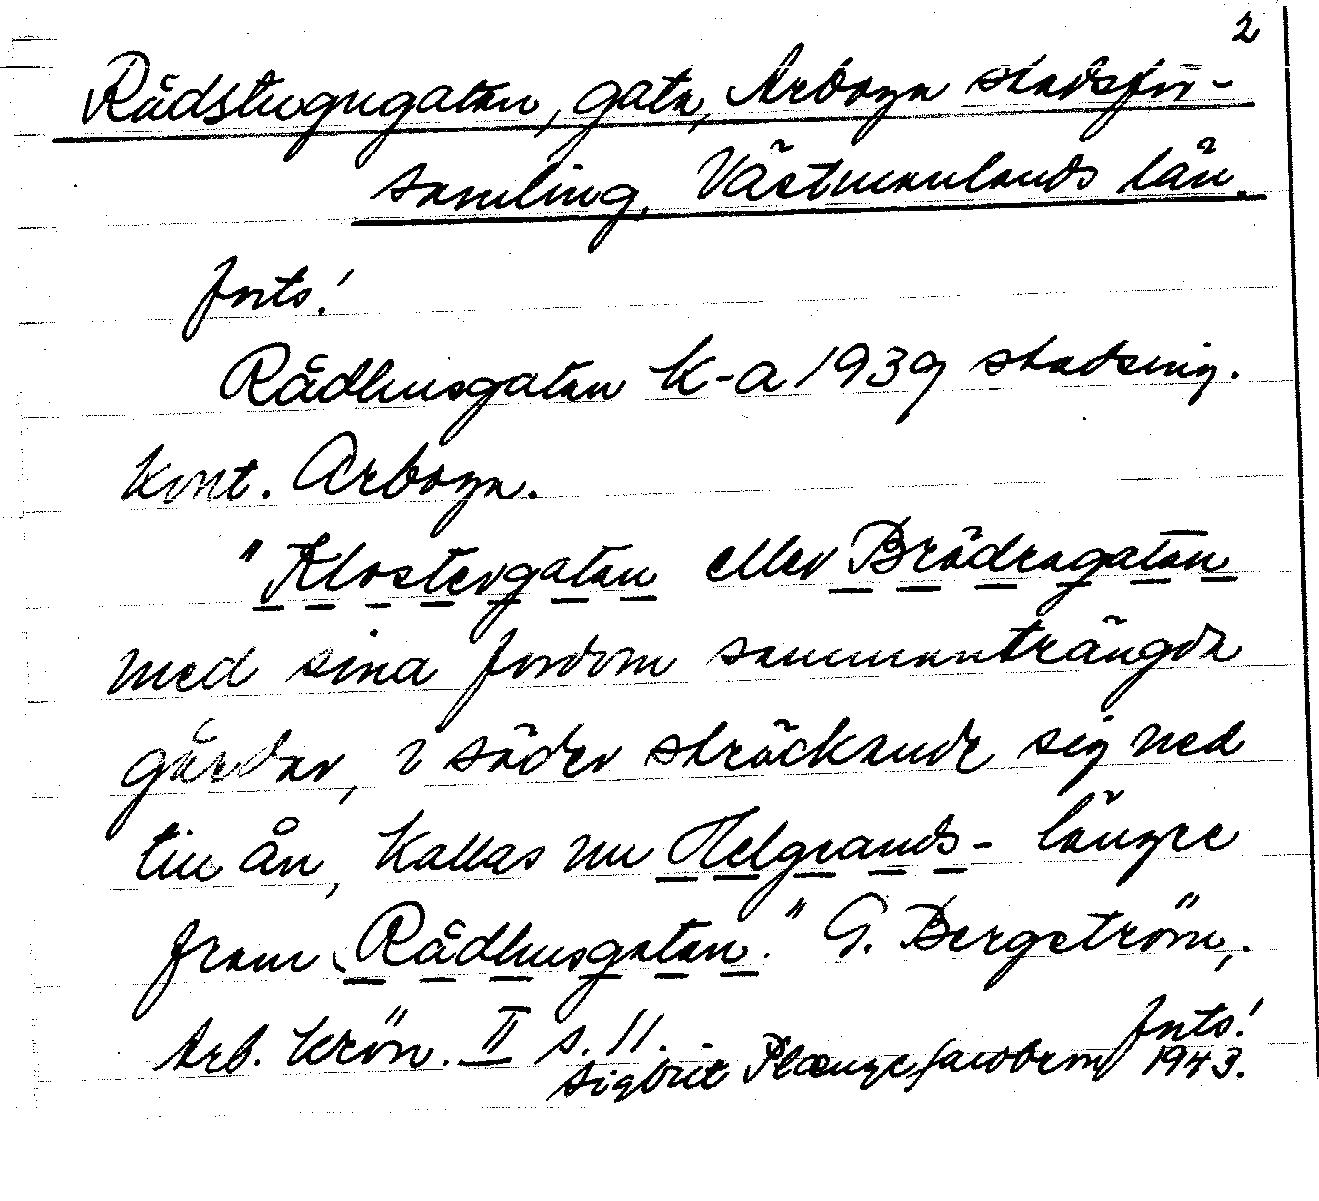 2
Rådstugugatan, gata, Arboga stadsför-
samling, Västmanlands län.
forts!
Rådhusgatan K-a 1939 stadsing.
kont. Arboga.
"Klostergatan eller Brödragatan
med sina fordom sammanträngda
gårdar, i söder sträckande sig ned
till ån, kallas nu Helgrands- längre
fram Rådhusgatan." G. Bergström,
Arb. Krön. II s. 11.
forts!
Sigbrit Plænge Jacobson 1943.